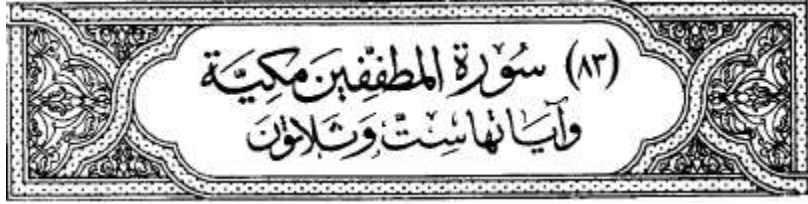 (٨٣) سُورَة المطفِّفِين مَكيَّة
وَآيَاتها سِتٌّ وَثَلاثون